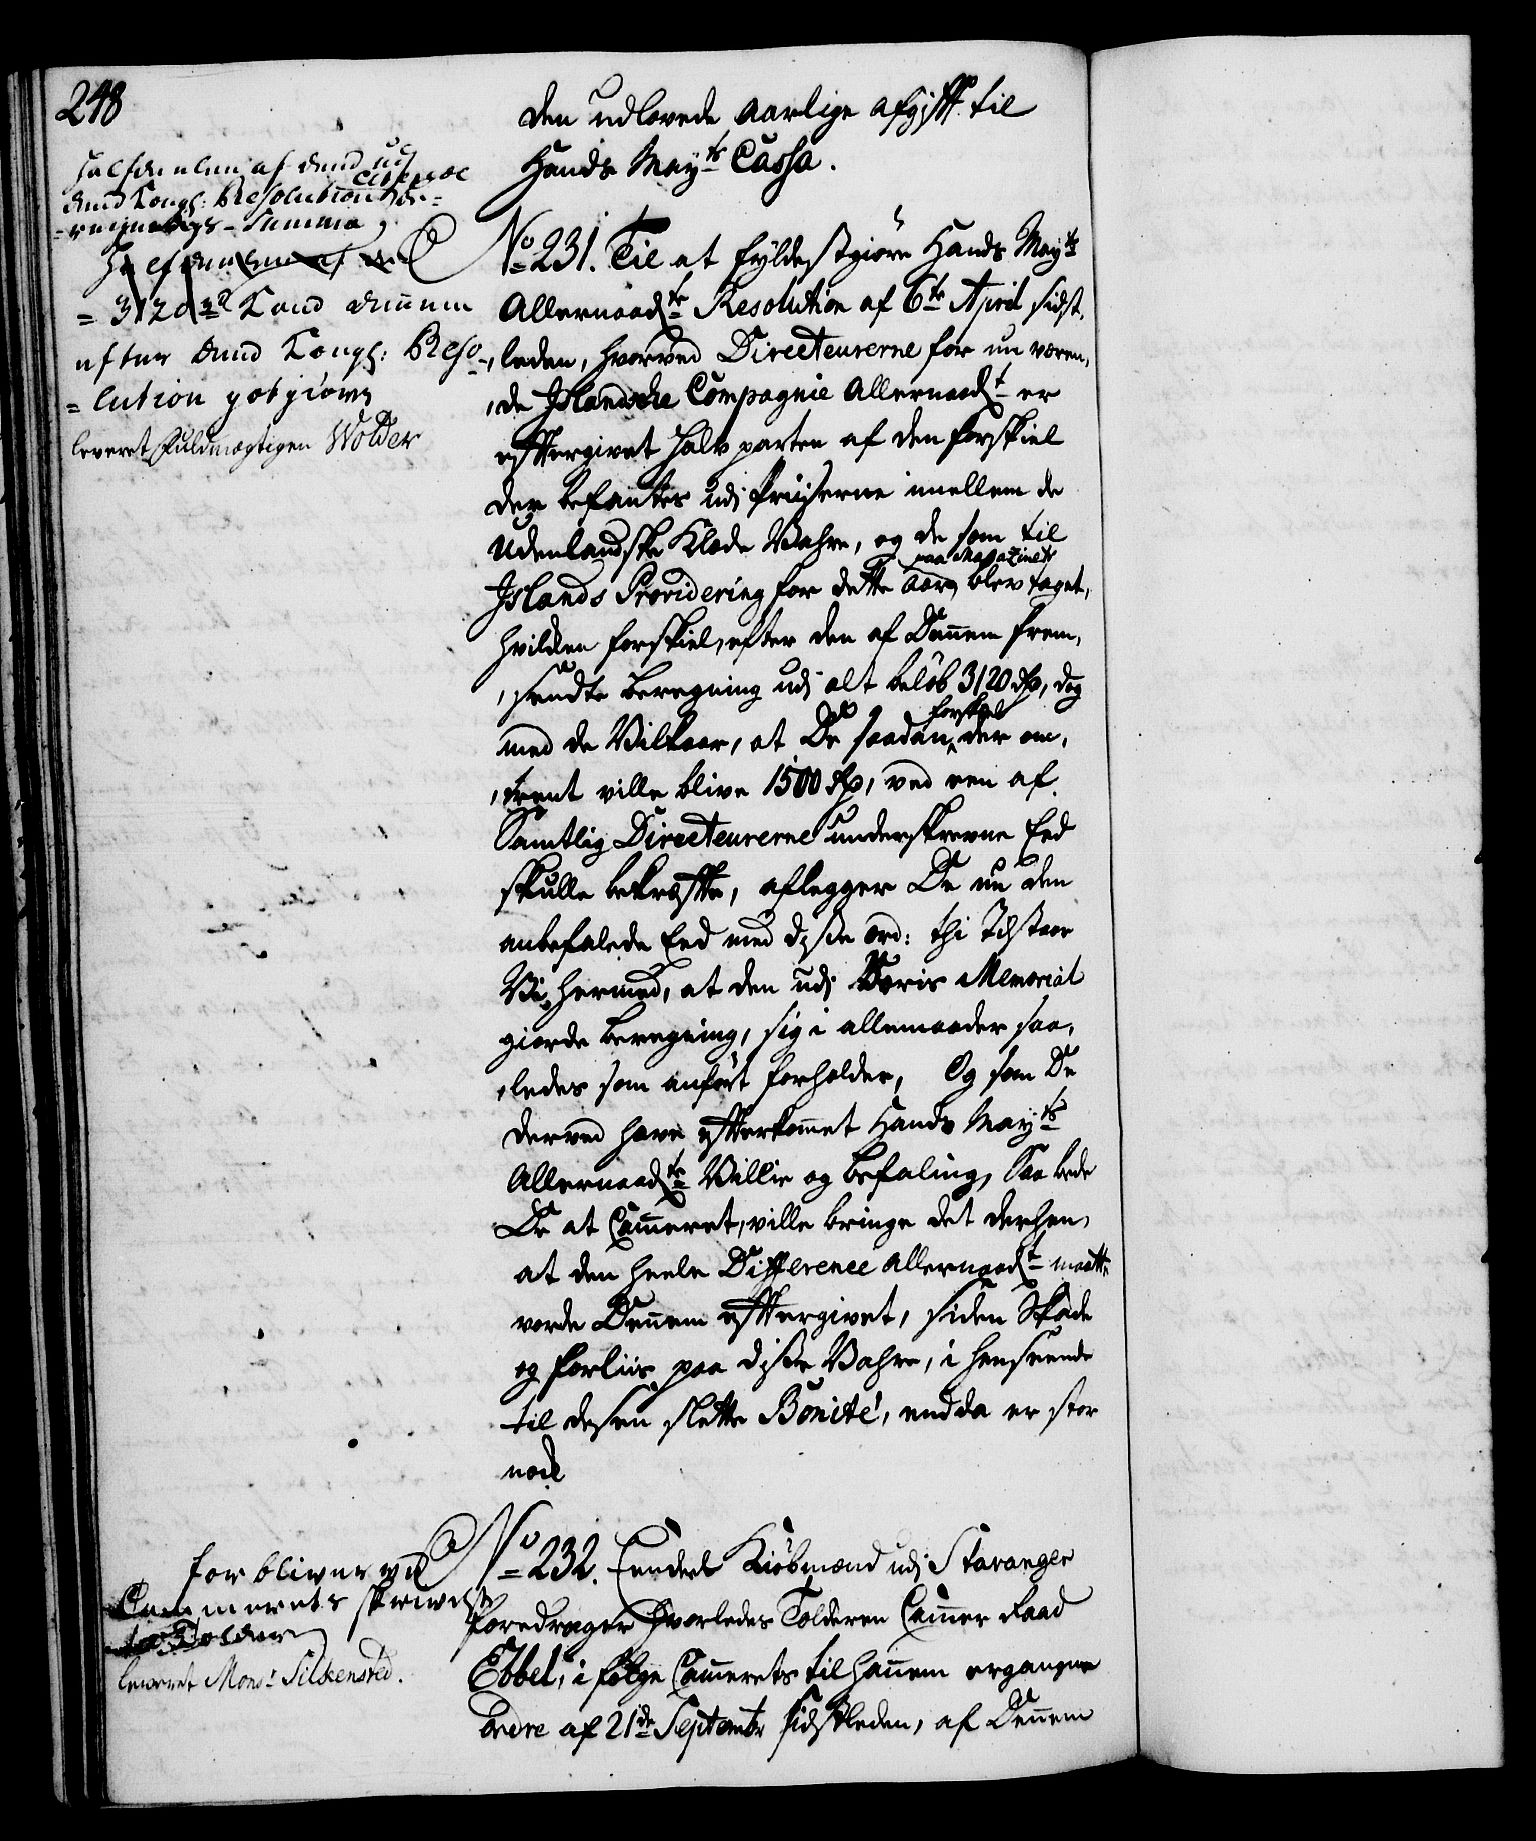 248
den udlovede aarlige afgifft til
Hands Mayts Cassa.
Halfdeelen af dend udj
dend Kongl: Resolution
-regnings-Summa,
= 3120 rd kand dennem
efter dend Kongl: Reso-
=lution godgiøres
leveret Fuldmægtigen Wolder
No 231. Til at fyldestgiøre Hands Mayts
Allernaadte Resolution af 6te April sidst,
,leden, hvorved Directeurerne for nu væren,
,de Jslandsche Compagnie Allernaadt er
efftergivet halv parten af den forskiel
der befantes udj Priiserne imellem de
Udenlandske Klæde Vahre, og de som til
paa Magazinet
Jslands Providering for dette aar, blev taget,
hvilken forskiel, efter den af Dannem frem,
,sendte beregning udj alt beløb 3120 rdr, dog
forskiel
med de Vilkaar, at De saadan, der om,
,trent ville blive 1500 rdr, ved een af
Samtlig Directeurerne underskrevne Eed
skulle bekræffte, aflegger De nu den
anbefalede Eed med disse ord: thi Tilstaar
Vi hermed, at den udj Voris Memorial
giorde beregning, sig i allemaader saa,
,ledes som anført forholder, Og som De
derved have effterkommet Hands Mayts
Allernaadte Villie og befaling, Saa bede
De at Cammeret, ville bringe det derhen,
at den heele Difference Allernaadt maatte
vorde Dennem efftergivet, siden Skade
og forliis paa disse Vahre, i henseende
til desen slette Bonité, endda er stor
nock
forbliver ved
Cammerets skrivelse
leveret Monsr Silkensted.
No 232. Eendeel Kiøbmænd udj Stavanger
foredrager hvorledes Tolderen Cammer Raad
Ebbel, i følge Cammerets til hannem ergangne
Ordre af 21de Septembr sidstleden, af Dennem